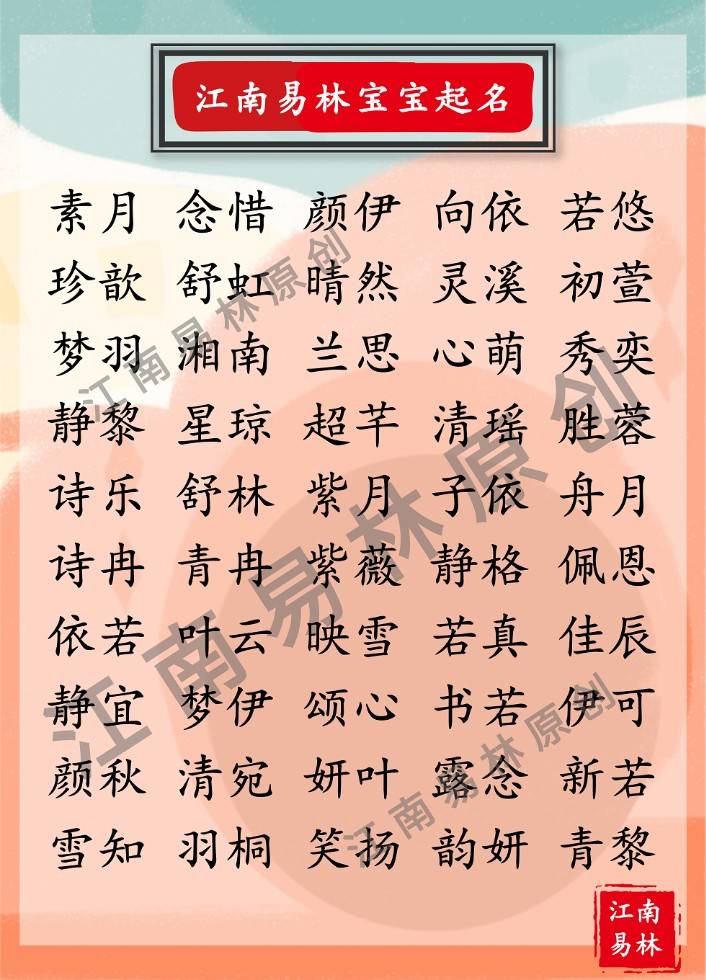 江南易林宝宝起名
素月 念惜 颜伊 向依 若悠
珍歆 舒虹 晴然 灵溪 初萱
梦羽 湘南 兰思 心萌 秀奕
静黎 星琼 超芊 清瑶 胜蓉
诗乐 舒林 紫月 子依 舟月
诗冉 青冉 紫薇 静格 佩恩
依若 叶云 映雪 若真 佳辰
静宜 梦伊 颂心 书若 伊可
颜秋 清宛 妍叶 露念 新若
雪知 羽桐 笑扬 韵妍 青黎
江南易林原创
江南易林原创
江南易林原创
江南
易林